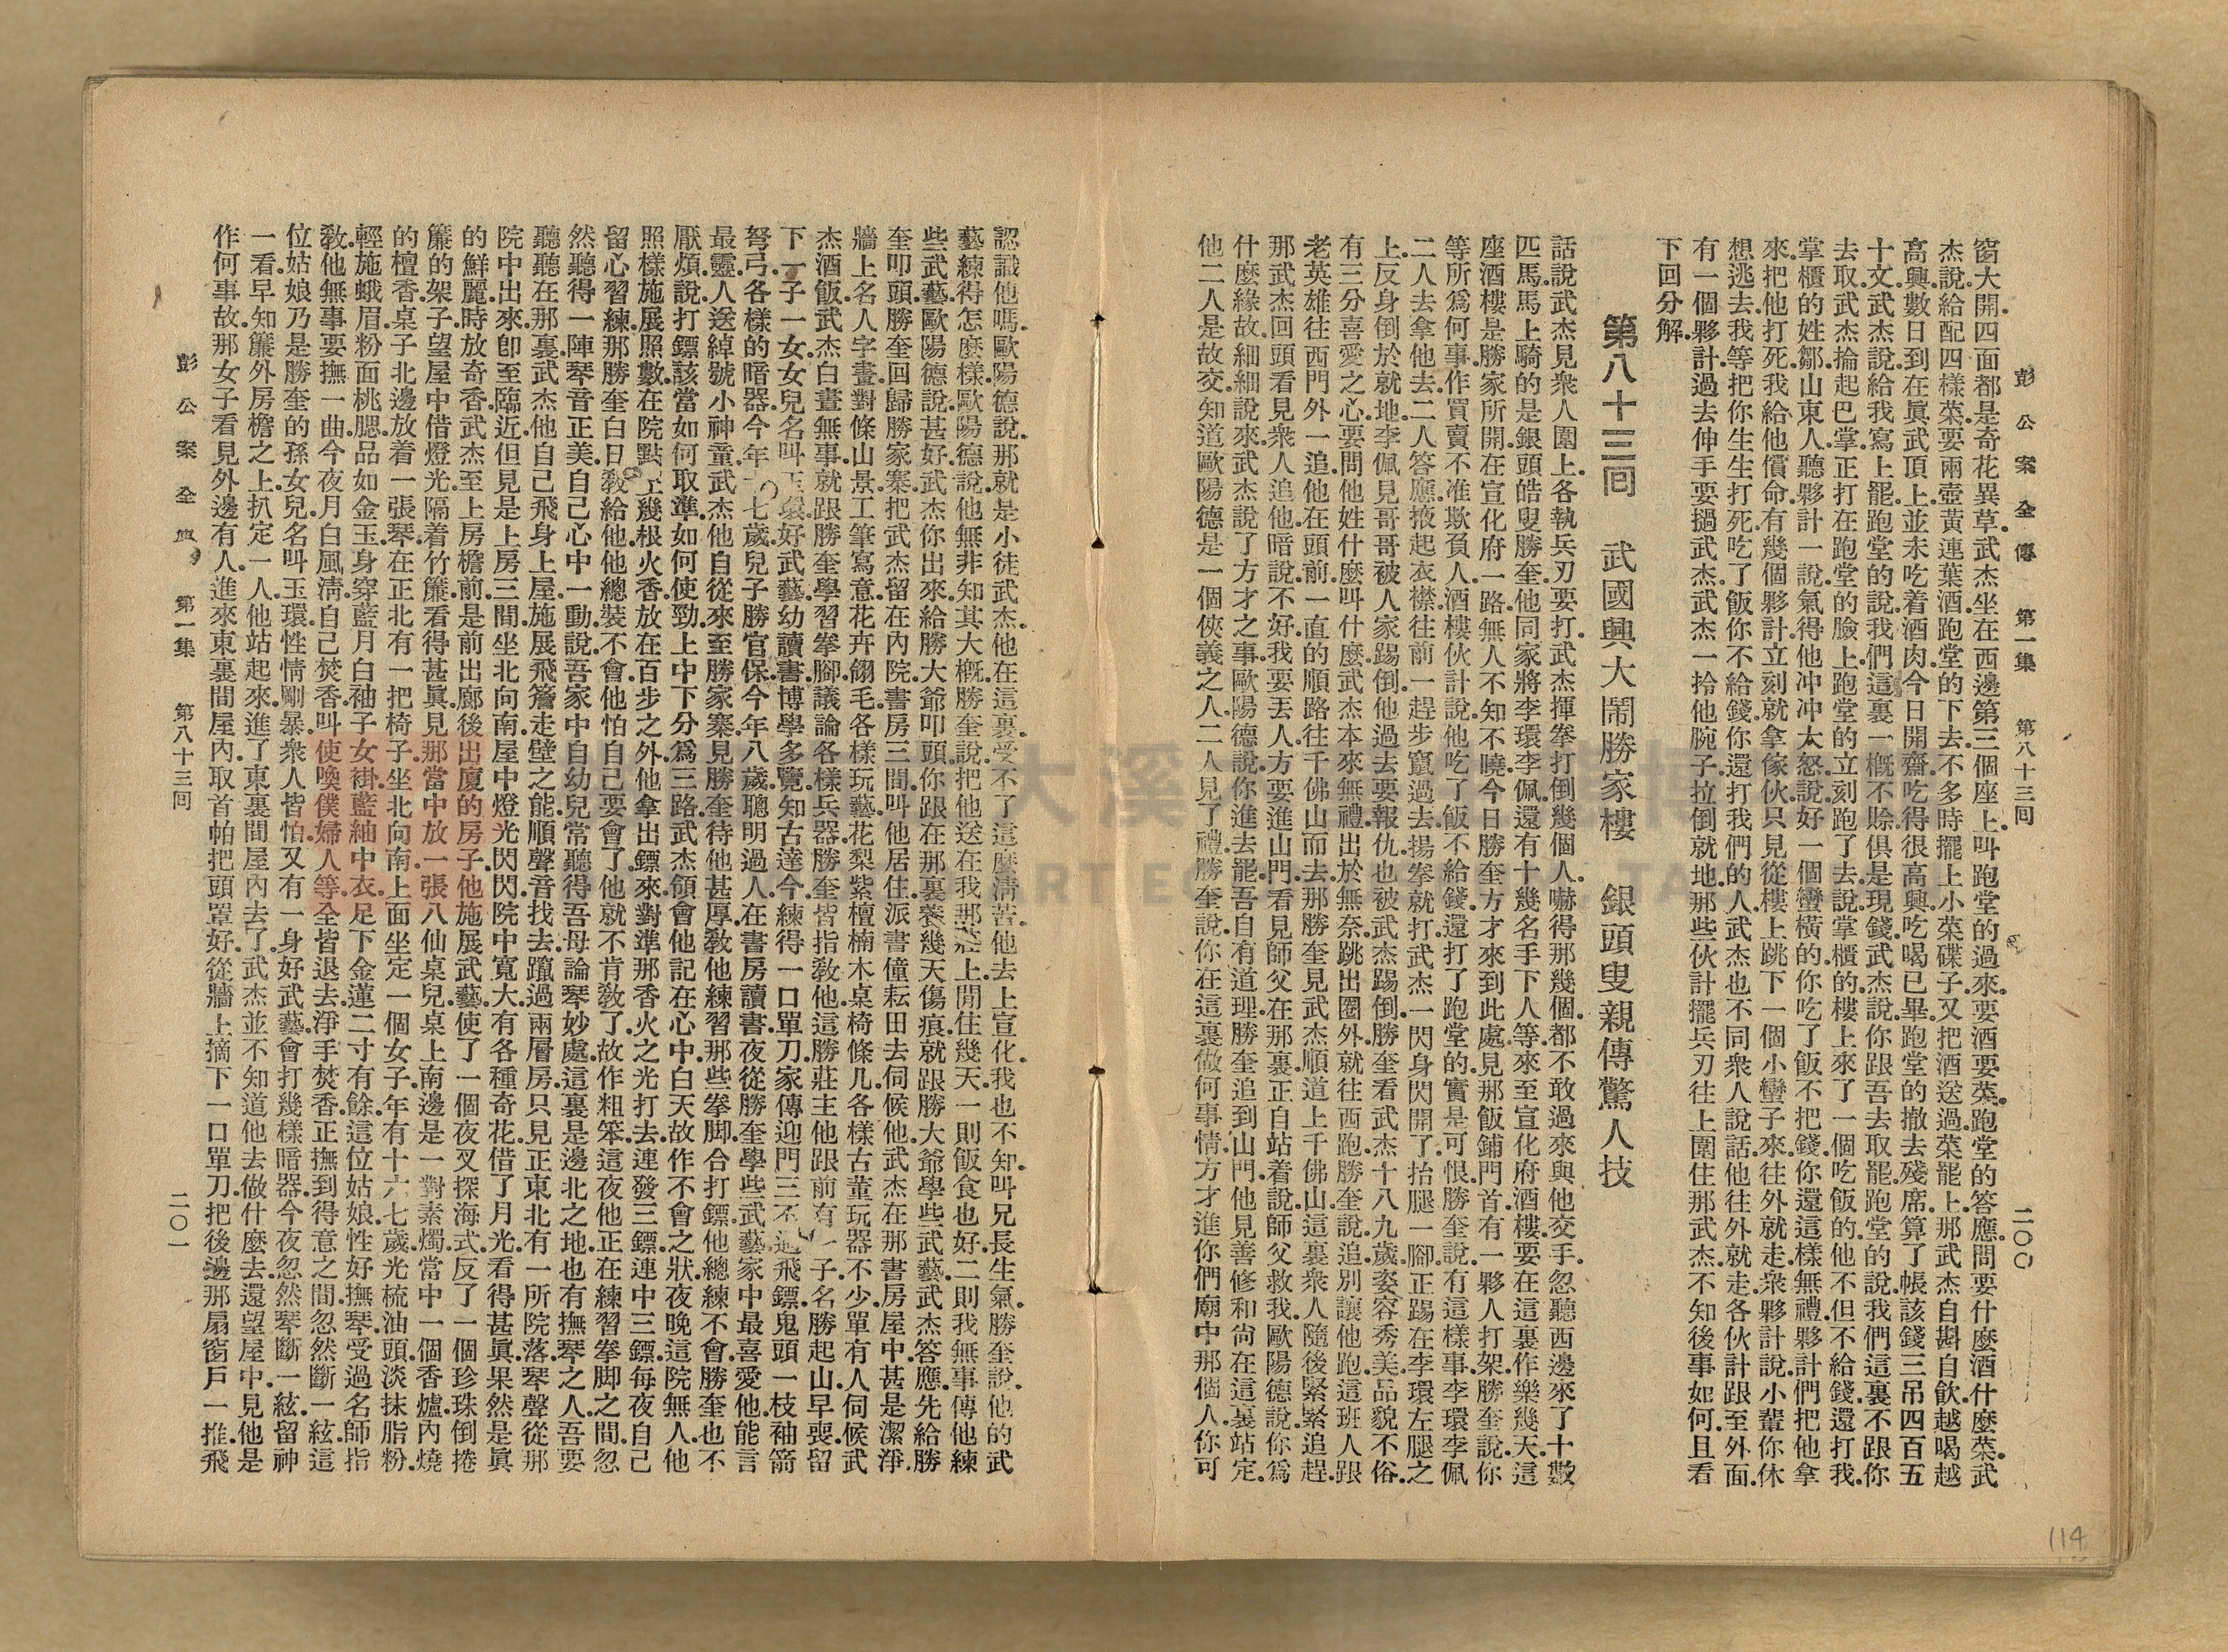 彭公案全傳　第一集　第八十三回　二〇〇
窗大開.四面都是奇花異草.武杰坐在西邊第三個座上.叫跑堂的過來.要酒要菜.跑堂的答應.問要什麼酒什麼菜.武
杰說給配四樣菜.要兩壺黃連葉酒.跑堂的下去.不多時擺上小菜碟子.又把酒送過菜罷上.那武杰自斟自飲.越喝越
高興.數日到在眞武頂上.並未吃着酒肉.今日開齋.吃得很高興.吃喝已畢.跑堂的撤去殘席.算了帳.該錢三吊四百五
十文.武杰說給我寫上罷.跑堂的說我們這裏一槪不賒.俱是現錢.武杰說你跟吾去取罷.跑堂的說我們這裏不跟你
去取.武杰掄起巴掌.正打在跑堂的臉上.跑堂的立刻跑了去.說掌櫃的樓上來了一個吃飯的.他不但不給錢.還打我.
掌櫃的姓鄒.山東人.聽夥計一說.氣得他冲冲大怒.說好一個蠻橫的.你吃了飯不把錢.你還這樣無禮.夥計們把他拿
來.把他打死.我給他償命.有幾個夥計立刻就拿傢伙.只見從樓上跳下一個小蠻子來.往外就走.衆夥計說小輩你休
想逃去.我等把你生生打死.吃了飯你不給錢.你還打我們的人.武杰也不同衆人說話.他往外就走.各伙計跟至外面.
有一個夥計過去伸手要揪武杰.武杰一拎他腕子拉倒就地.那些伙計擺兵刃往上圍住那武杰.不知後事如何.且看
下回分解.
第八十三回　武國興大鬧勝家樓　銀頭叟親傳驚人技
話說武杰見衆人圍上.各執兵刃要打.武杰揮拳打倒幾個人.嚇得那幾個.都不敢過來與他交手.忽聽西邊來了十數
匹馬.馬上騎的是銀頭皓叟勝奎.他同家將李環李佩.還有十幾名手下人等.來至宣化府酒樓.要在這裏作樂幾天.這
座酒樓.是勝家所開.在宣化府一路.無人不知不曉.今日勝奎方才來到此處.見那飯鋪門首.有一夥人打架.勝奎說你
等所爲何事.作買賣不准欺負人.酒樓伙計說他吃了飯不給錢.還打了跑堂的.實是可恨.勝奎說有這樣事.李環李佩
二人去拿他去.二人答應.掖起衣襟.往前一趕步竄過去.揚拳就打.武杰一閃身閃開了.抬腿一腳.正踢在李環左腿之
上.反身倒於就地.李佩見哥哥被人家踢倒.他過去要報仇.也被武杰踢倒.勝奎看武杰十八九歲.姿容秀美.品貌不俗.
有三分喜愛之心.要問他姓什麼叫什麼.武杰本來無禮.出於無奈.跳出圈外.就往西跑.勝奎說追.別讓他跑.這班人跟
老英雄往西門外一追.他在頭前一直的順路往千佛山而去.那勝奎見武杰順道上千佛山.這裏衆人隨後緊緊追趕.
那武杰回頭看見衆人追他.暗說不好.我要丟人.方要進山門.看見師父在那裏正自站着.說師父救我.歐陽德說你爲
什麼緣故.細細說來.武杰說了方才之事.歐陽德說你進去罷.吾自有道理.勝奎追到山門.他見善修和尙在這裏站定.
他二人是故交.知道歐陽德是一個俠義之人.二人見了禮.勝奎說.你在這裏做何事情.方才進你們廟中那個人.你可
認識他嗎.歐陽德說.那就是小徒武杰.他在這裏受不了這麼淸苦.他去上宣化.我也不知.叫兄長生氣.勝奎說.他的武
藝練得怎麼樣.歐陽德說他無非知其大槪.勝奎說.把他送在我那莊上.閒住幾天.一則飯食也好.二則我無事傳他練
些武藝.歐陽德說甚好.武杰你出來給勝大爺叩頭.你跟在那裏養幾天傷痕.就跟勝大爺學些武藝.武杰答應.先給勝
奎叩頭.勝奎回歸勝家寨.把武杰留在內院書房三間.叫他居住.派書僮耘田去伺候他.武杰在那書房屋中.甚是潔淨.
牆上名人字畫.對條山景.工筆寫意.花卉翎毛.各樣玩藝.花梨紫檀楠木桌椅條几.各樣古董玩器不少.單有人伺候武
杰酒飯.武杰白晝無事.就跟勝奎學習拳腳.議論各樣兵器.勝奎皆指敎他.這勝莊主他跟前有子.名勝起山.早喪.留
下一子一女.女兒名叫玉環.好武藝.幼讀書.博學多覽.知古達今.練得一口單刀.家傳迎門三不過.飛鏢鬼頭.一枝袖箭
弩弓.各樣的暗器.今年十七歲.兒子勝官保.今年八歲.聰明過人.在書房讀書.夜從勝奎學些武藝.家中最喜愛他.能言
最靈.人送綽號小神童.武杰他自從來至勝家寨.見勝奎待他甚厚.敎他練習那些拳脚.合打鏢.他總練不會.勝奎也不
厭煩.說打鏢該當如何取準.如何使勁.上中下分爲三路.武杰領會.他記在心中.白天故作不會之狀.夜晚這院無人.他
照樣施展.照數在院點上幾根火香.放在百步之外.他拿出鏢來.對準那香火之光打去.連發三鏢.連中三鏢.每夜自己
留心習練.那勝奎白日敎給他.他總裝不會.他怕自己要會了.他就不肯敎了.故作粗笨.這夜他正在練習拳脚之間.忽
然聽得一陣琴音正美.自己心中一動.說吾家中自幼兒常聽得吾母論琴妙處.這裏是邊北之地.也有撫琴之人.吾要
聽聽在那裏.武杰他自己飛身上屋.施展飛簷走壁之能.順聲音找去.躥過兩層房.只見正東北有一所院落.琴聲從那
院中出來.卽至臨近.但見是上房三間.坐北向南.屋中燈光閃閃.院中寬大.有各種奇花.借了月光.看得甚眞.果然是眞
的鮮麗.時放奇香.武杰至上房檐前.是前出廊後出廈的房子.他施展武藝.使了一個夜叉探海式.反了一個珍珠倒捲
簾的架子.望屋中借燈光.隔着竹簾看得甚眞.見那當中放一張八仙桌兒.桌上南邊是一對素燭.當中一個香爐.內燒
的檀香.桌子北邊放着一張琴.在正北有一把椅子.坐北向南.上面坐定一個女子.年有十六七歲.光梳油頭.淡抹脂粉.
輕施蛾眉.粉面桃腮.品如金玉.身穿藍月白袖子女褂.藍紬中衣.足下金蓮二寸有餘.這位姑娘.性好撫琴.受過名師指
敎.他無事要撫一曲.今夜月白風淸.自己焚香.叫使喚僕婦人等.全皆退去.淨手焚香.正撫到得意之間.忽然斷一絃.這
位姑娘.乃是勝奎的孫女兒.名叫玉環.性情剛暴.衆人皆怕.又有一身好武藝.會打幾樣暗器.今夜忽然琴斷一絃.留神
一看.早知簾外房檐之上.扒定一人.他站起來.進了東裏間屋內去了.武杰並不知道他去做什麼去.還望屋中見他是
作何事故.那女子看見外邊有人.進來東裏間屋內.取首帕把頭罩好.從牆上摘下一口單刀.把後邊那扇窗戶一推.飛
彭公案全　第一集　第八十三回　二〇一
114
大溪